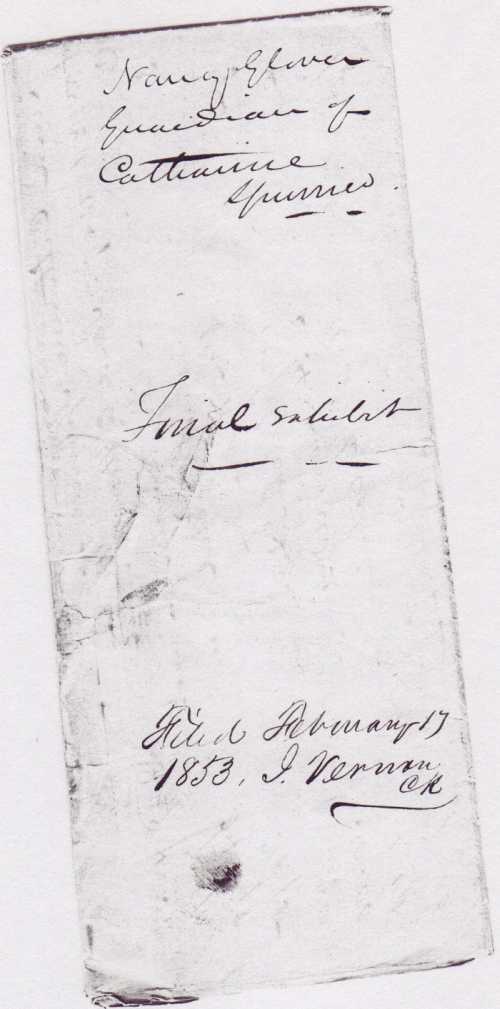 Nancy Glover
Guardian of
Catharine

Final Exhibit
Filed February 17
1853, J. Vernon
Clk